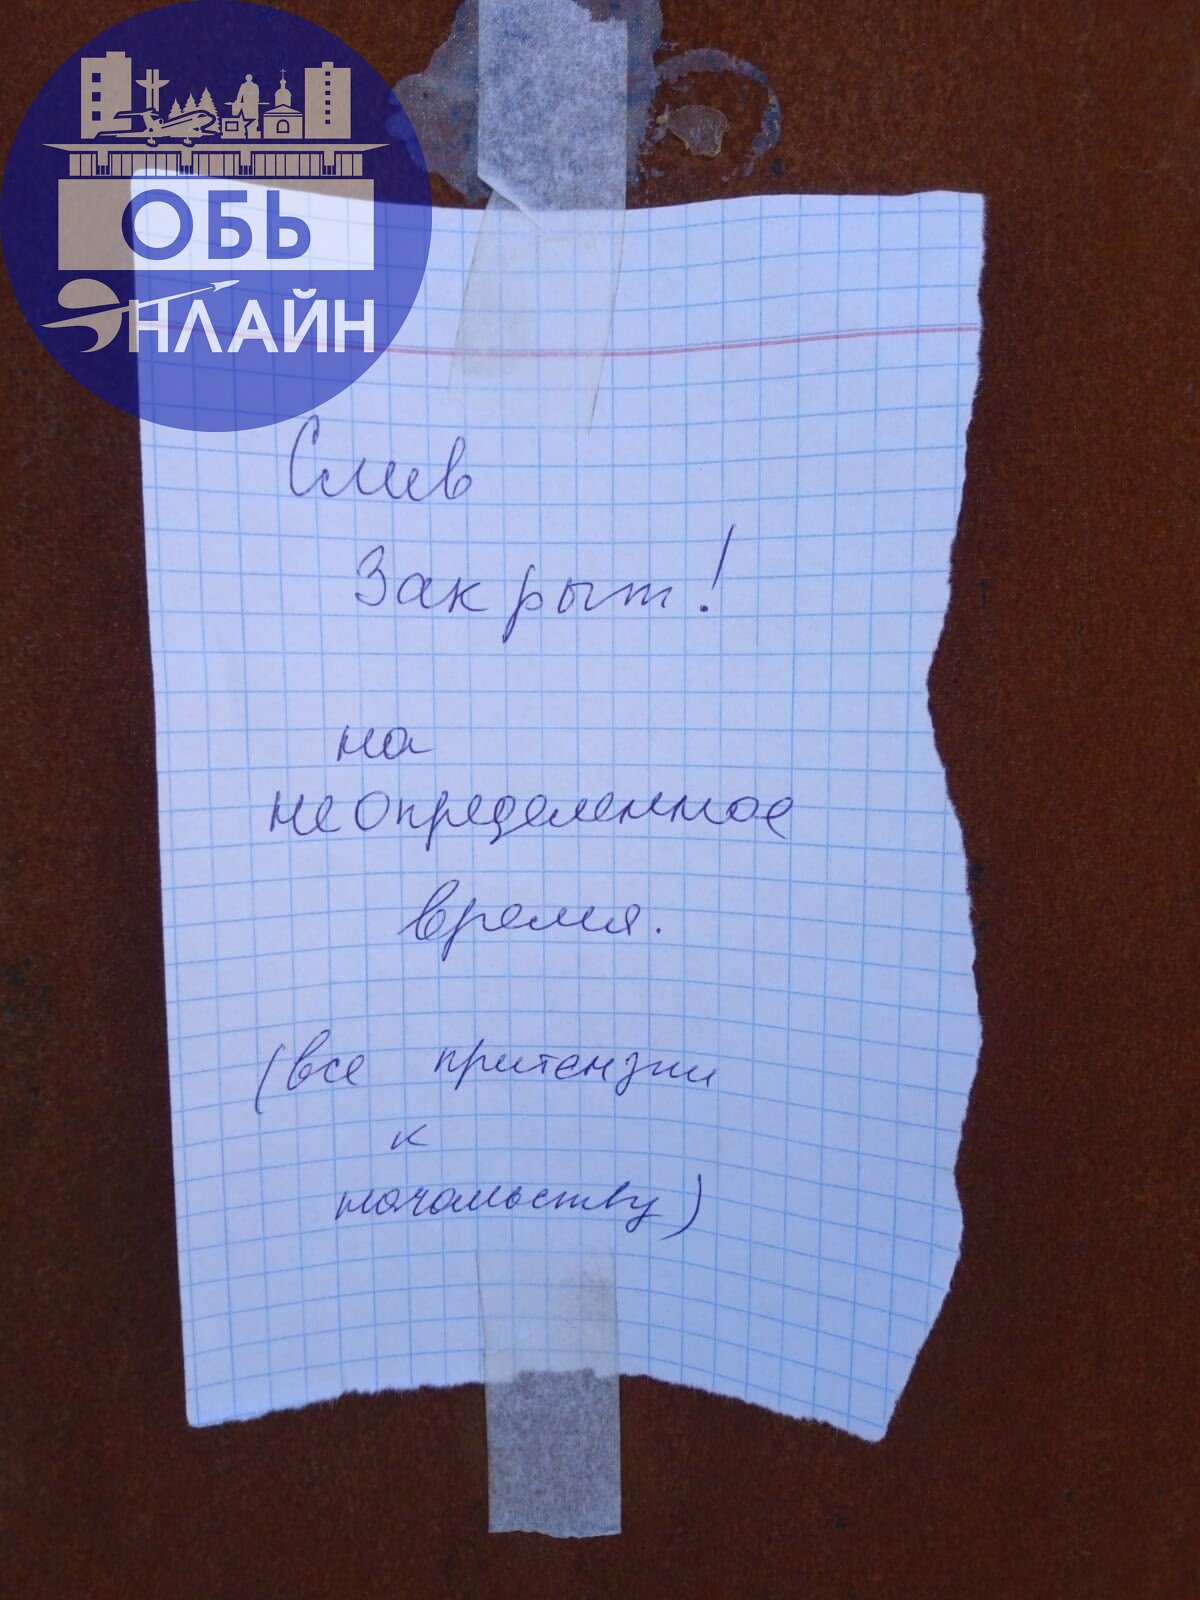 ОБЬ
ОНЛАЙН
Слив
Закрыт!
на
неопределенное
время.
(все притензии
к
начальству)